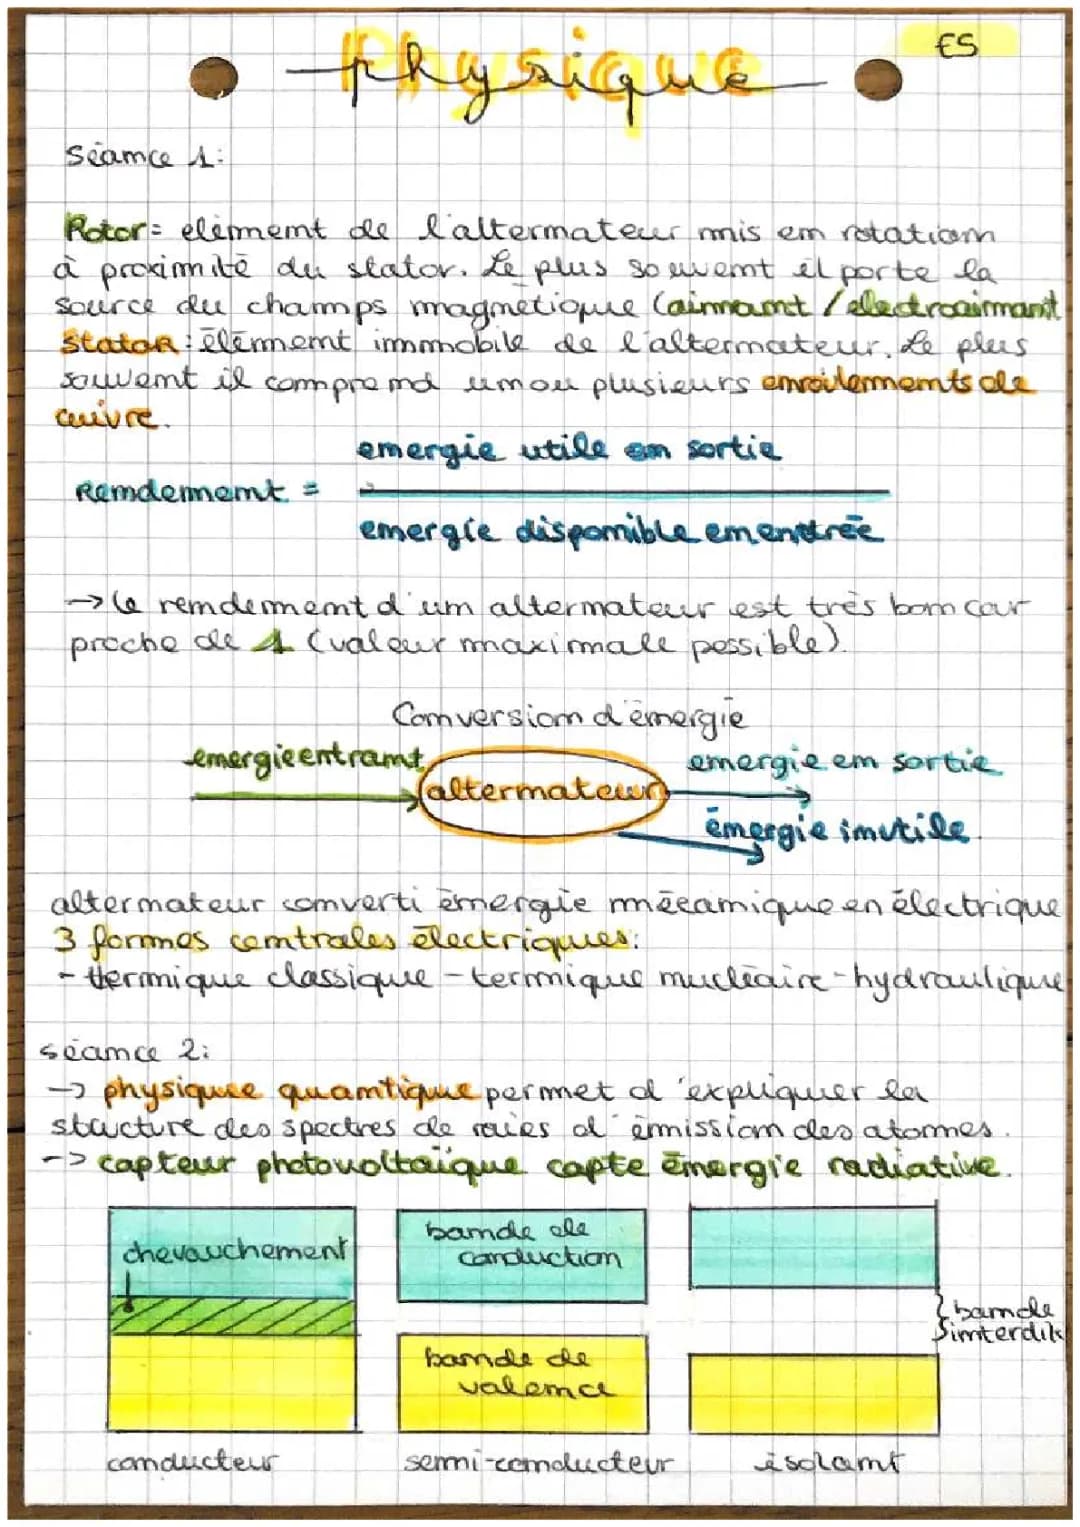 Physique
ES
Séance 1:
Rotor= elément de l'alternateur mis en rotation
à proximité du stator. Le plus souvent il porte la
source du champs magnétique (aimant / electroaimant
Stator: élément immobile de l'alternateur. Le plus
souvent il comprend un ou plusieurs enroilements de
cuivre.
Rendement = energie utile en sortie
energie disponible en entrée
→ le rendement d'un alternateur est très bon car
proche de 1 (valeur maximale possible).
Conversion d'énergie
energie entrant
alternateur
energie en sortie
énergie inutile
alternateur converti énergie mécanique en électrique
3 formes centrales électriques:
- thermique classique - termique nucléaire - hydraulique
séance 2:
-> physique quantique permet d'expliquer la
stucture des spectres de raies d'émission des atomes.
-> capteur photovoltaïque capte énergie radiative.
chevauchement
bande de
conduction
bande
interdite
bande de
valence
conducteur
semi-conducteur
isolant